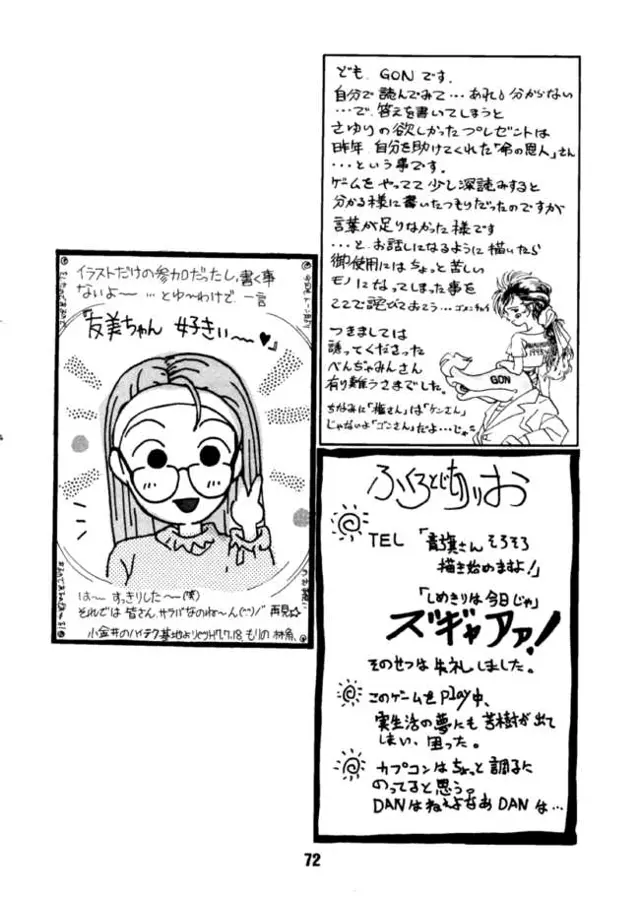 ども、GONです。
自分で読んでみて…あれ?分からない
…で、答えを書いてしまうと
さゆりの欲しかったプレゼントは
昨年、自分を助けてくれた「命の恩人」さん
…という事です。
ゲームをやってて少し深読みすると
分かる様に書いたつもりだったのですが
言葉が足りなかった様です
…と、お話しになるように描いたら
御使用にはちょっと苦しい
モノになってしまった事を
ここで詫びておこう…ゴメンナサイ
つきましては
誘ってくださった
べんぢゃみんさん
有り難うさまでした。
ちなみに「権さん」は「ケンさん」
じゃないよ「ゴンさん」だよ…じゃ
GON
イラストだけの参加だったし、書く事
ないよ〜 …とゆ〜わけで 一言
『友美ちゃん 好きぃ〜♥』
は〜 すっきりした〜(笑)
それでは皆さん、サラバなのね〜ん(^^)/ 再見☆
小金井のハイテク基地より H7.7.18. もりの
ふくろとじありお
TEL「青旗さん そろそろ
描き始めますよ!」
「しめきりは今日じゃ」
ズギャアァ!
そのせつは失礼しました。
このゲームをplay中、
実生活の夢にも 苦樹が出て
しまい、困った。
カプコンはちょっと調子に
のってると思うっ
DANはねえよなあ DANは…
72